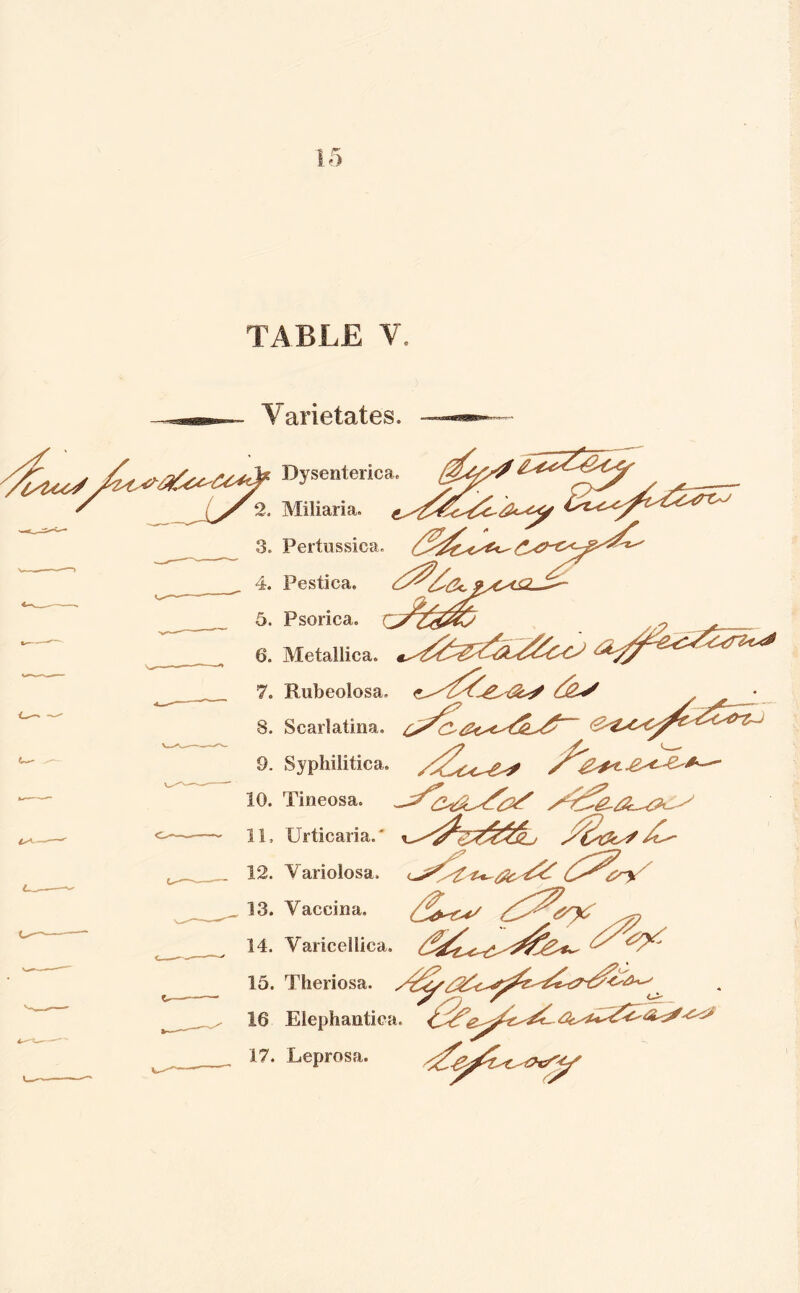 15
TABLE V.
Varietates.
Dysenterica. Dysentery
2. Miliaria. Miliary Eruptions
3. Pertussica. Chin cough
4. Pestica. Plague
5. Psorica. Itch
6. Metallica. Metallic affections
7. Rubeolosa. Measles
8. Scarlatina. Scarlet eruption
9. Syphilitica. Lues Venerea
10. Tineosa. Scald Head
11, Urticaria. Nettle Rash
12. Variolosa. Small Pox
13. Vaccina. Cow Pox
14. Varicellica. Chicken Pox
15. Theriosa. Hydrophobia
16 Elephantica. Elephantiasis
17. Leprosa. Leprosy